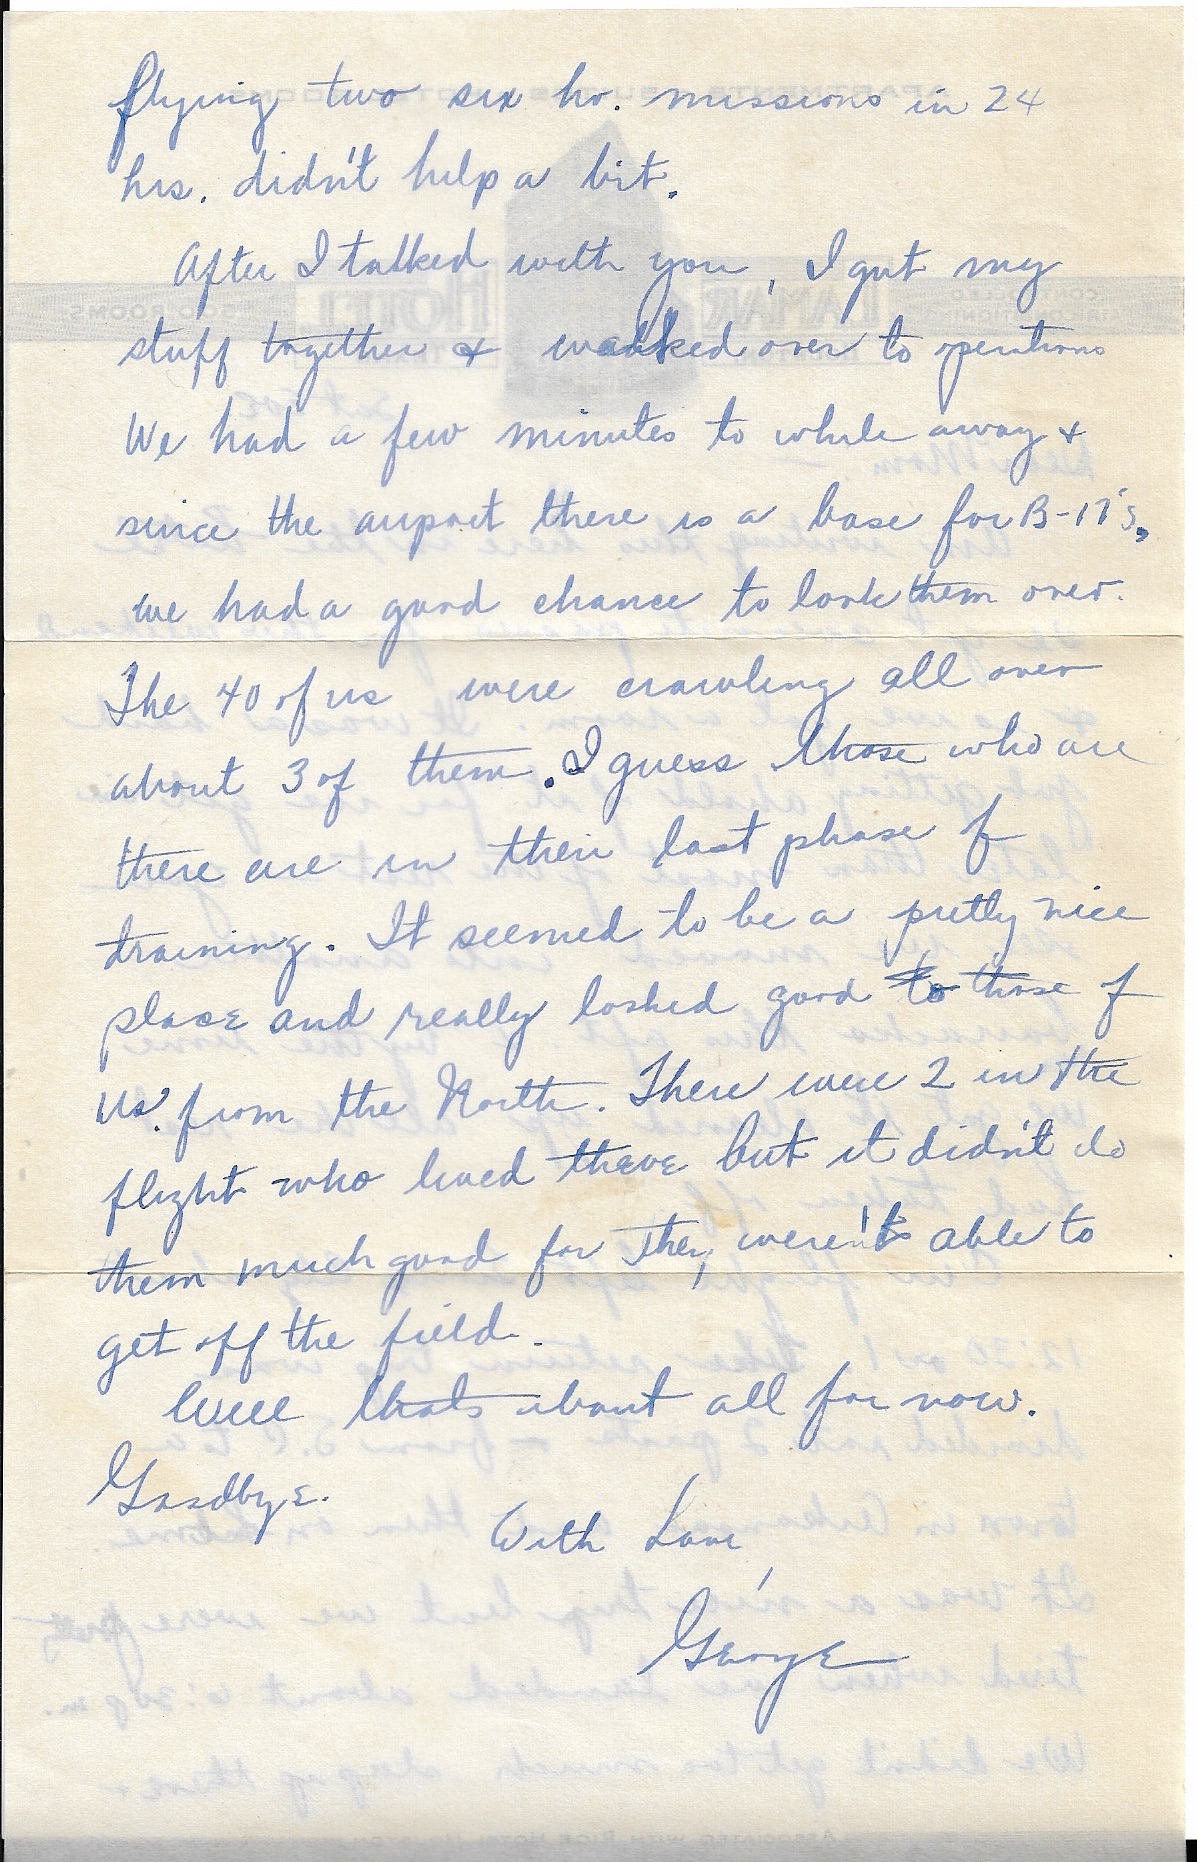 flying two six hr. missions in 24
hrs. didn't help a bit.
After I talked with you, I got my
stuff together & walked over to operations
We had a few minutes to while away &
since the airport there is a base for B-17's,
we had a good chance to look them over.
The 40 of us were crawling all over
about 3 of them. I guess those who are
there are in their last phase of
training. It seemed to be a pretty nice
place and really looked good to those of
us from the North. There were 2 in the
flight who lived there but it didn't do
them much good for they weren't able to
get off the field.
Well thats about all for now.
Goodbye.
With Love,
George